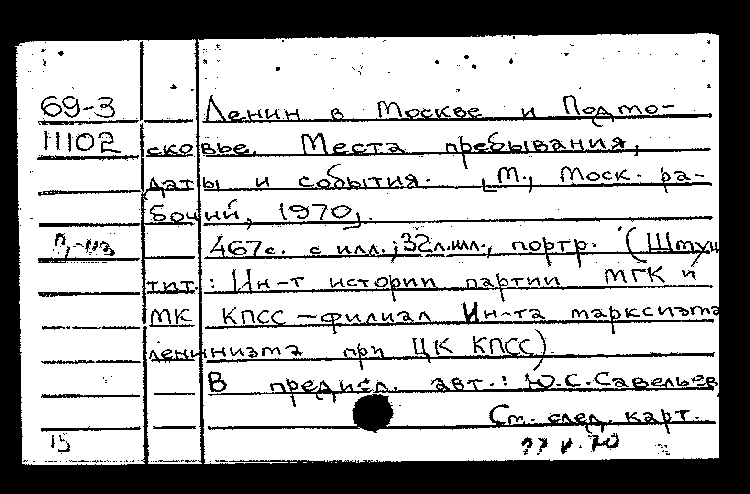 69-3 Ленин в Москве и Подмо-
11102 сковье. Места пребывания,
даты и события. [М., Моск. ра-
бочий, 1970].
467с. с илл.; 32л.илл., портр. (
тит.: Ин-т истории партии МГК и
МК КПСС - филиал Ин-та марксизма
ленинизма при ЦК КПСС)
В предисл. авт.: Ю.С.Савельев
См. след. карт.
15